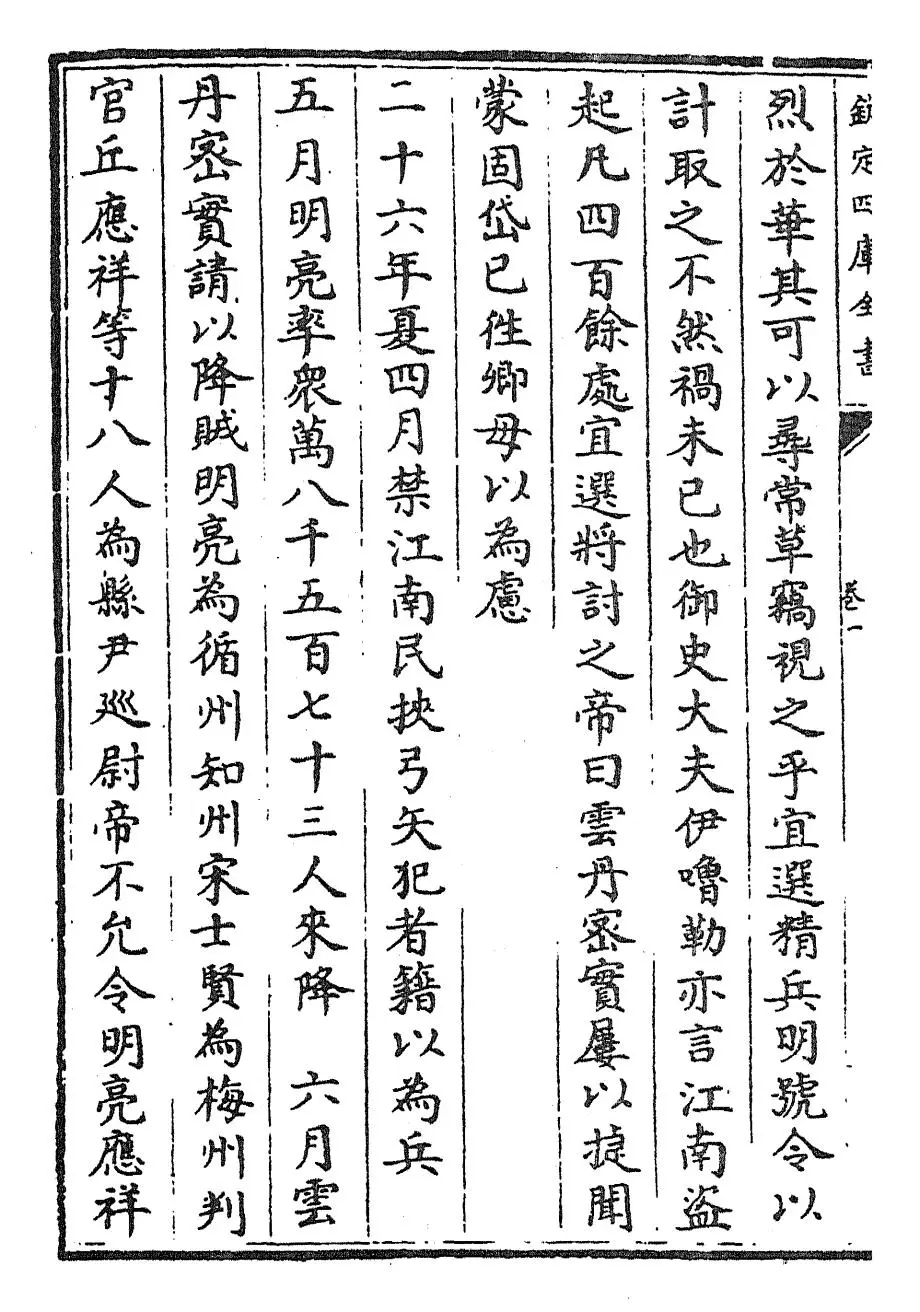 欽定四庫全書
卷一
烈於華其可以尋常草竊視之乎宜選精兵明號令以
計取之不然禍未已也御史大夫伊嚕勒亦言江南盜
起凡四百餘處宜選將討之帝曰雲丹宻實屢以捷聞
蒙固岱已徃卿毋以為慮
二十六年夏四月禁江南民挾弓矢犯者籍以為兵
五月明亮率衆萬八千五百七十三人來降　六月雲
丹宻實請以降賊明亮為循州知州宋士賢為梅州判
官丘應祥等十八人為縣尹廵尉帝不允令明亮應祥